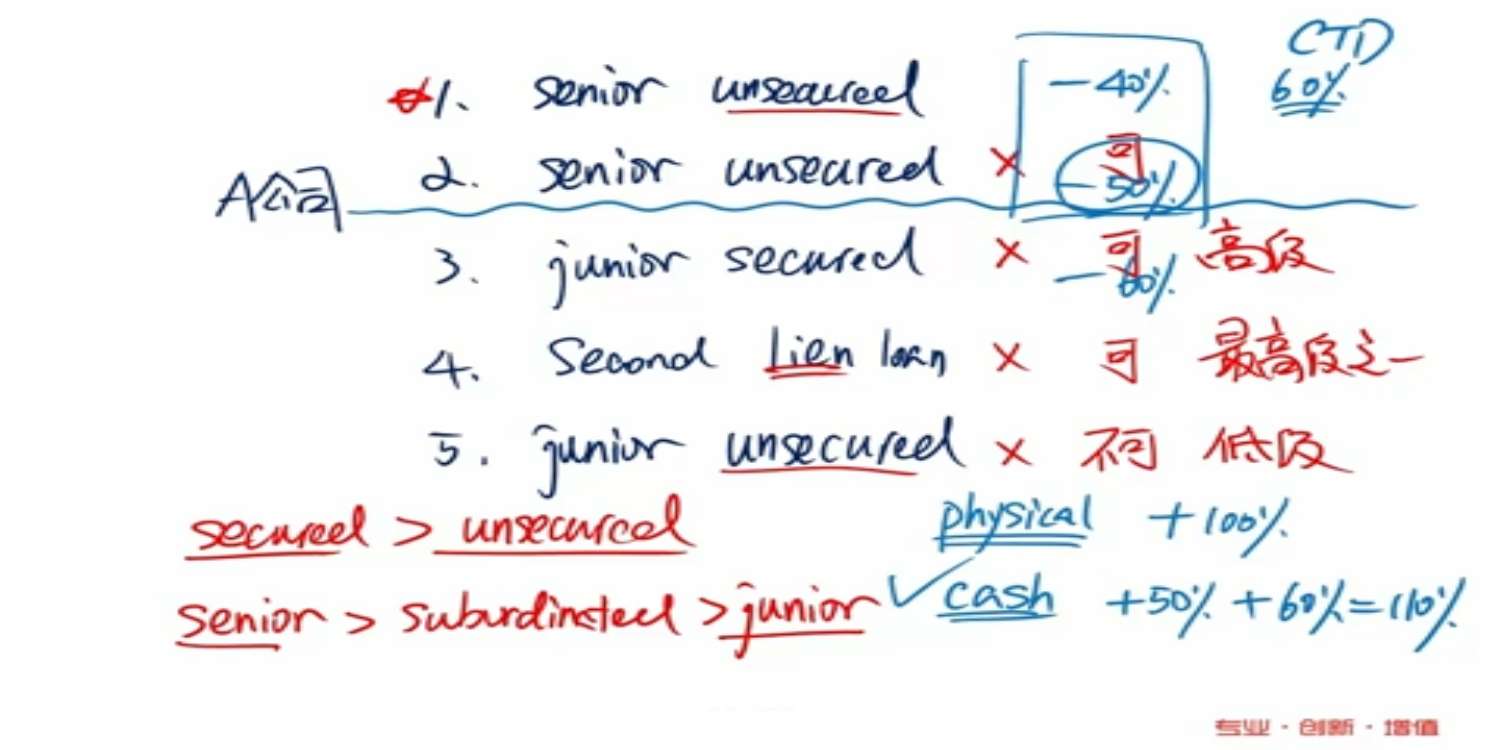 1. senior unsecured -40% CTD 60%
2. senior unsecured × 可 -50%
A公司
3. junior secured × 可 高级 -60%
4. Second Lien loan × 可 最高级之一
5. junior unsecured × 不可 低级
secured > unsecured physical +100%
senior > suburdinated > junior ✓ cash +50% + 60% = 110%
专业 · 创新 · 增值